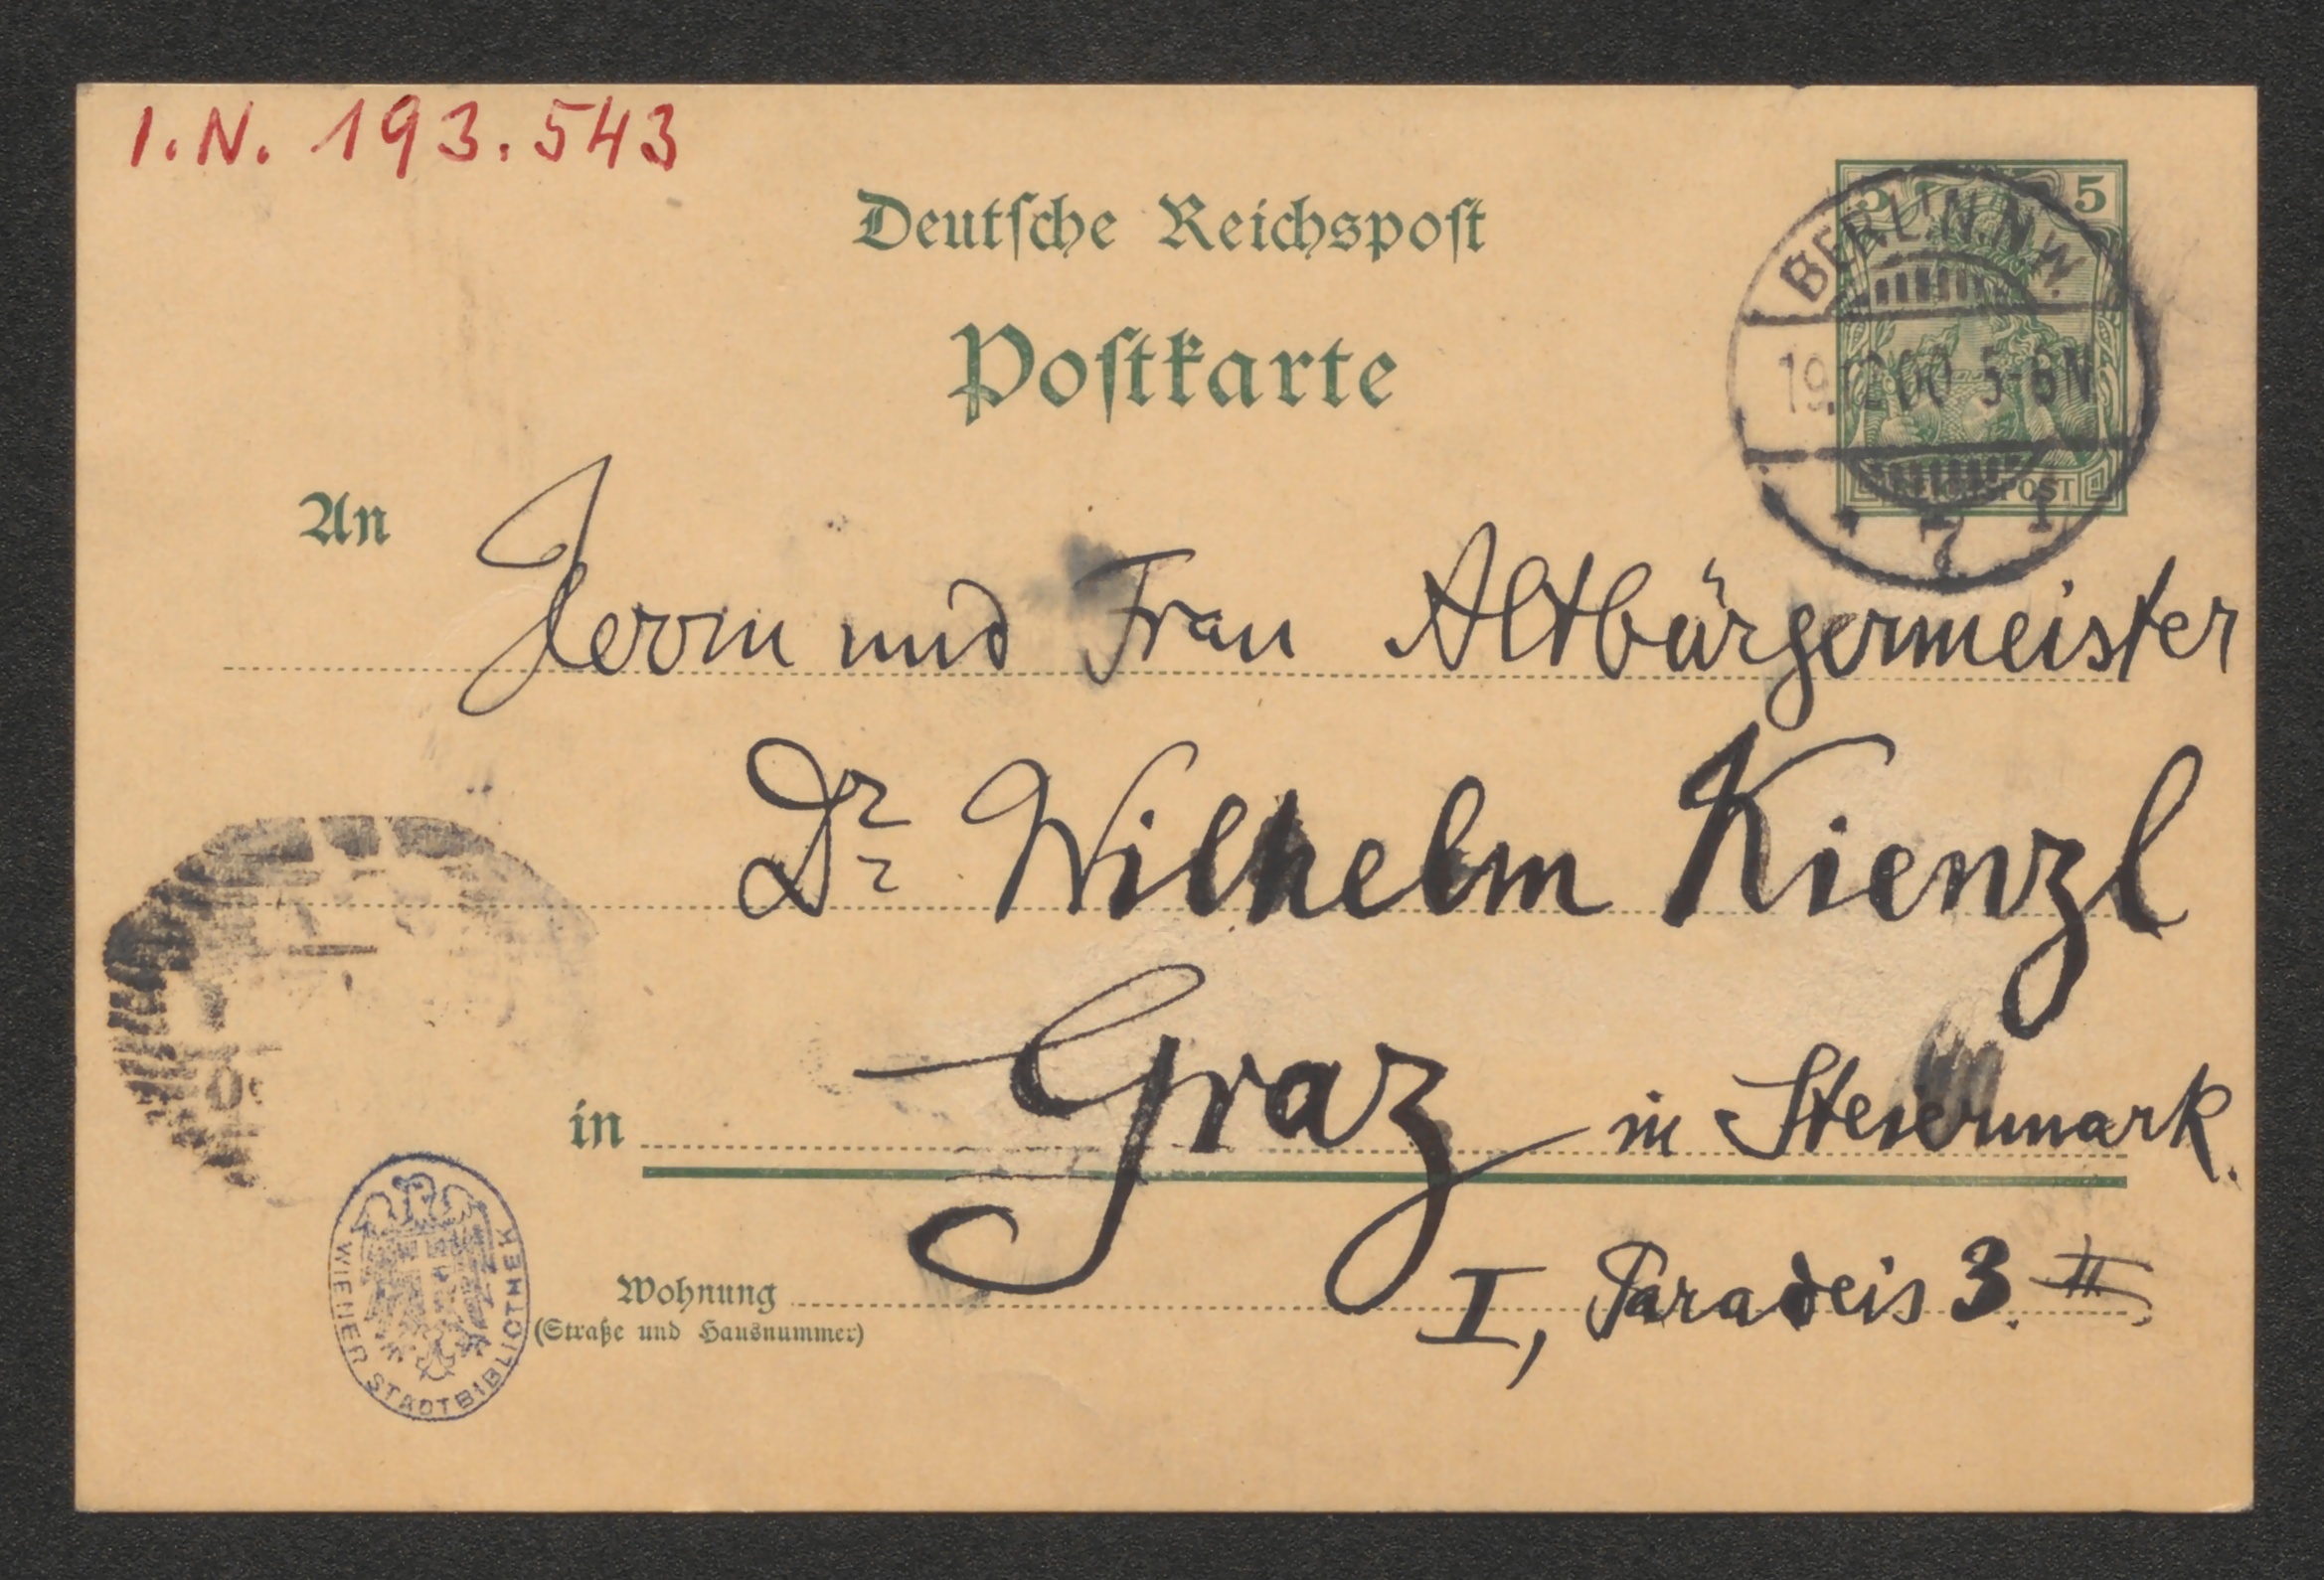 I.N. 193.543
Deutsche Reichspost
5 5
BERLIN N.W.
19.12.00 5-6N
REICHSPOST
* 7 I
Postkarte
An Herrn und Frau Altbürgermeister
Dr Wilhelm Kienzl
in Graz in Steiermark.
Wohnung
(Straße und Hausnummer)
I, Paradeis 3. II.
WIENER STADTBIBLIOTHEK